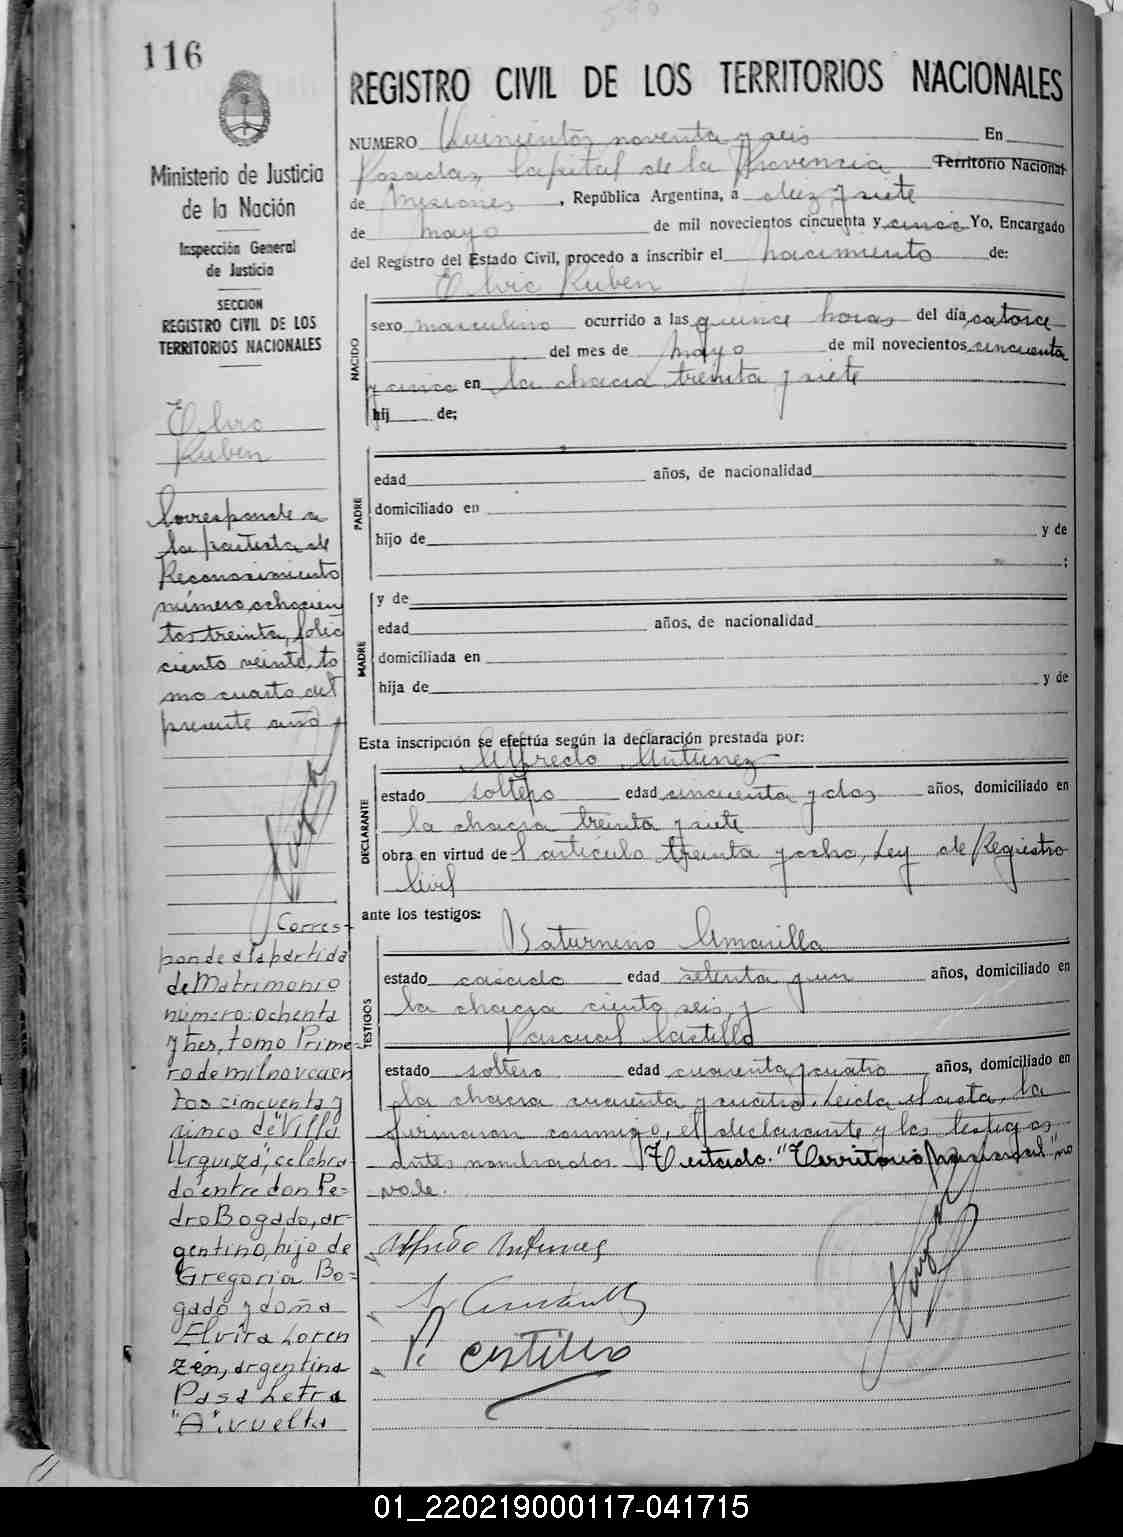 116
Ministerio de Justicia
de la Nación
Inspección General
de Justicia
SECCION
REGISTRO CIVIL DE LOS
TERRITORIOS NACIONALES
Elvio
Ruben
Corresponde a
la partida de
Reconocimiento
número ochocien
tos treinta, folio
ciento veinte, to
mo cuarto del
presente año
Corres-
ponde a la partida
de Matrimonio
número: ochenta
y tres, tomo Prime-
ro de mil novecien
tos cincuenta y
cinco de "Villa
Urquiza", celebra-
do entre don Pe-
dro Bogado, ar-
gentino, hijo de
Gregoria Bo-
gado y doña
Elvira Loren
zen, argentina
Pasa Letra
"A" vuelta
REGISTRO CIVIL DE LOS TERRITORIOS NACIONALES
NUMERO Quinientos noventa y seis En
Posadas, Capital de la Provincia Territorio Nacional
de Misiones, República Argentina, a diez y siete
de mayo de mil novecientos cincuenta y cinco Yo, Encargado
del Registro del Estado Civil, procedo a inscribir el nacimiento de:
Elvio Ruben
NACIDO
sexo masculino ocurrido a las quince horas del día catorce
del mes de mayo de mil novecientos cincuenta
y cinco en la chacra treinta y siete
hij de;
PADRE
edad años, de nacionalidad
domiciliado en
hijo de y de
;
MADRE
y de
edad años, de nacionalidad
domiciliada en
hija de y de
Esta inscripción se efectúa según la declaración prestada por:
Alfredo Antunez
DECLARANTE
estado soltero edad cincuenta y dos años, domiciliado en
la chacra treinta y siete
obra en virtud de l artículo treinta y ocho, Ley de Registro
Civil
ante los testigos:
Saturnino Amarilla
TESTIGOS
estado casado edad setenta y un años, domiciliado en
la chacra ciento seis, y
Pascual Castillo
estado soltero edad cuarenta y cuatro años, domiciliado en
la chacra cuarenta y cuatro. Leida el acta, la
firmaron conmigo, el declarante y los testigos
antes nombrados. Testado: "Territorio Nacional" no
vale.
Alfredo Antunez
P. Castillo
01_220219000117-041715